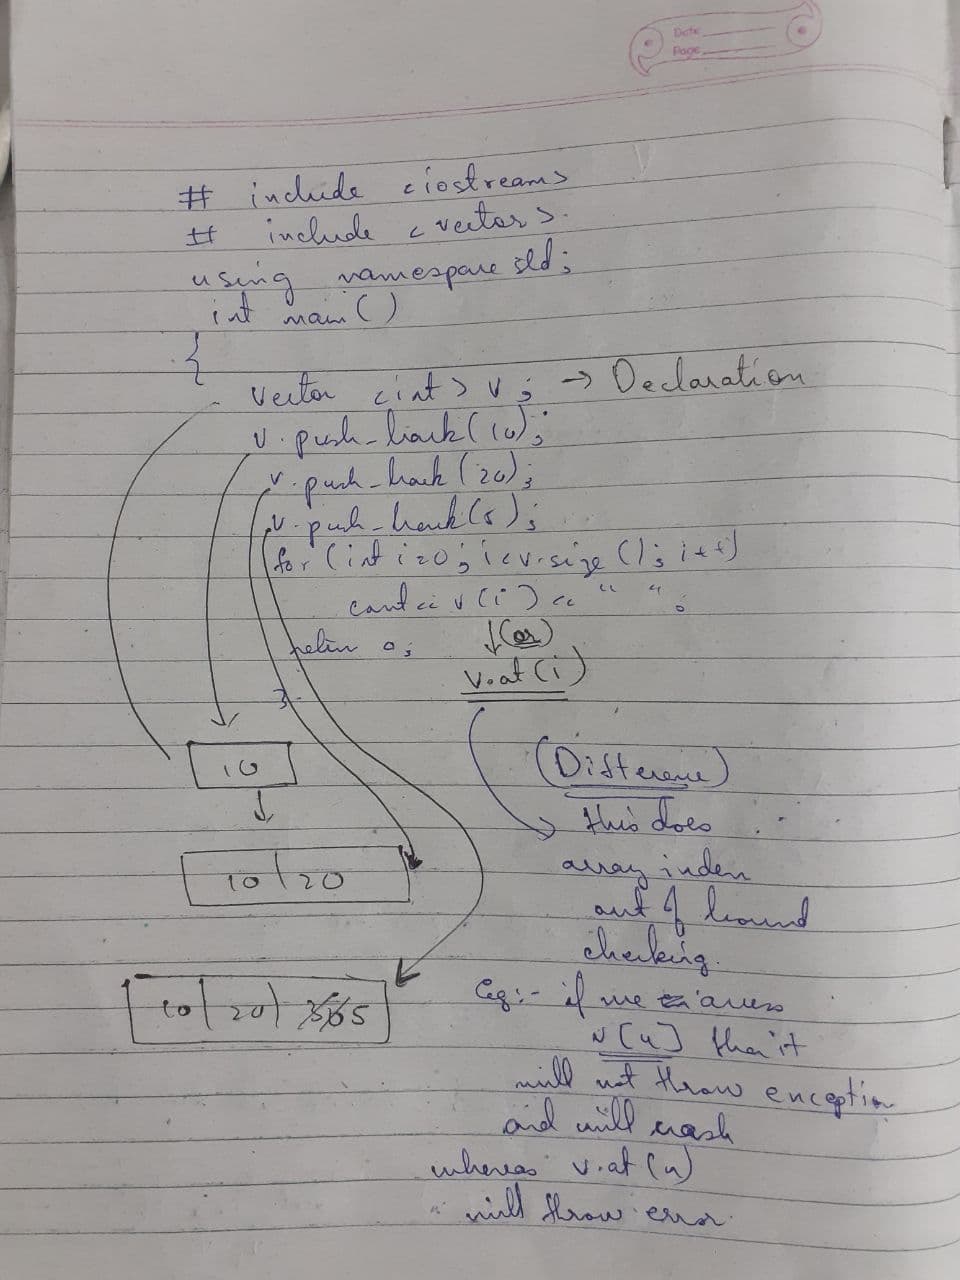 Date
Page
# include <iostream>
# include <vector>.
using namespace std;
int main()
{
vector <int> v; → Declaration
v.push_back(10);
v.push_back(20);
v.push_back(5);
for (int i=0; i<v.size(); i++)
cout << v[i] << " " ;
return 0;
↓(or)
v.at(i)
}
10
↓
10 | 20
10 | 20 | 5
(Difference)
this does
array index
out of bound
checking.
Eg:- if we access
v[n] then it
will not throw exception
and will crash
whereas v.at(n)
will throw error.